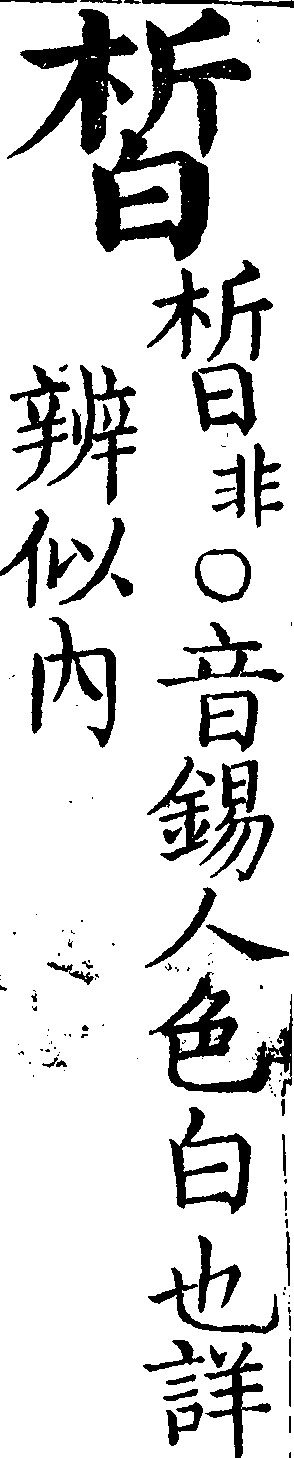 皙
晳非○音錫人色白也詳
辨似內